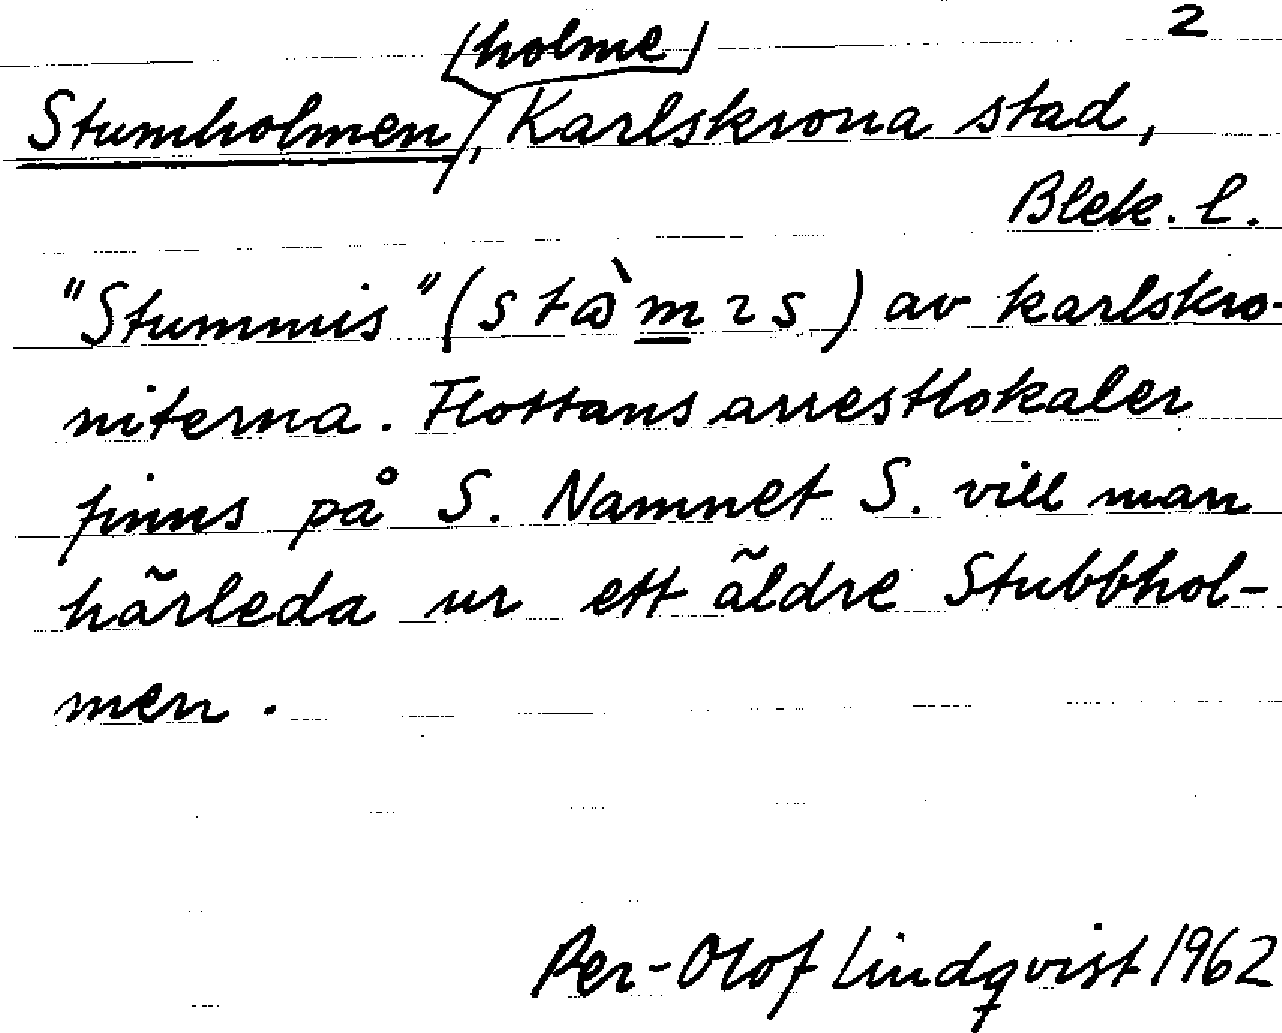 2
(holme)
Stumholmen, Karlskrona stad,
Blek. l.
"Stummis" (stɷ̀mɿs) av karlskro-
niterna. Flottans arrestlokaler
finns på S. Namnet S. vill man
härleda ur ett äldre Stubbhol-
men.
Per-Olof Lindqvist 1962